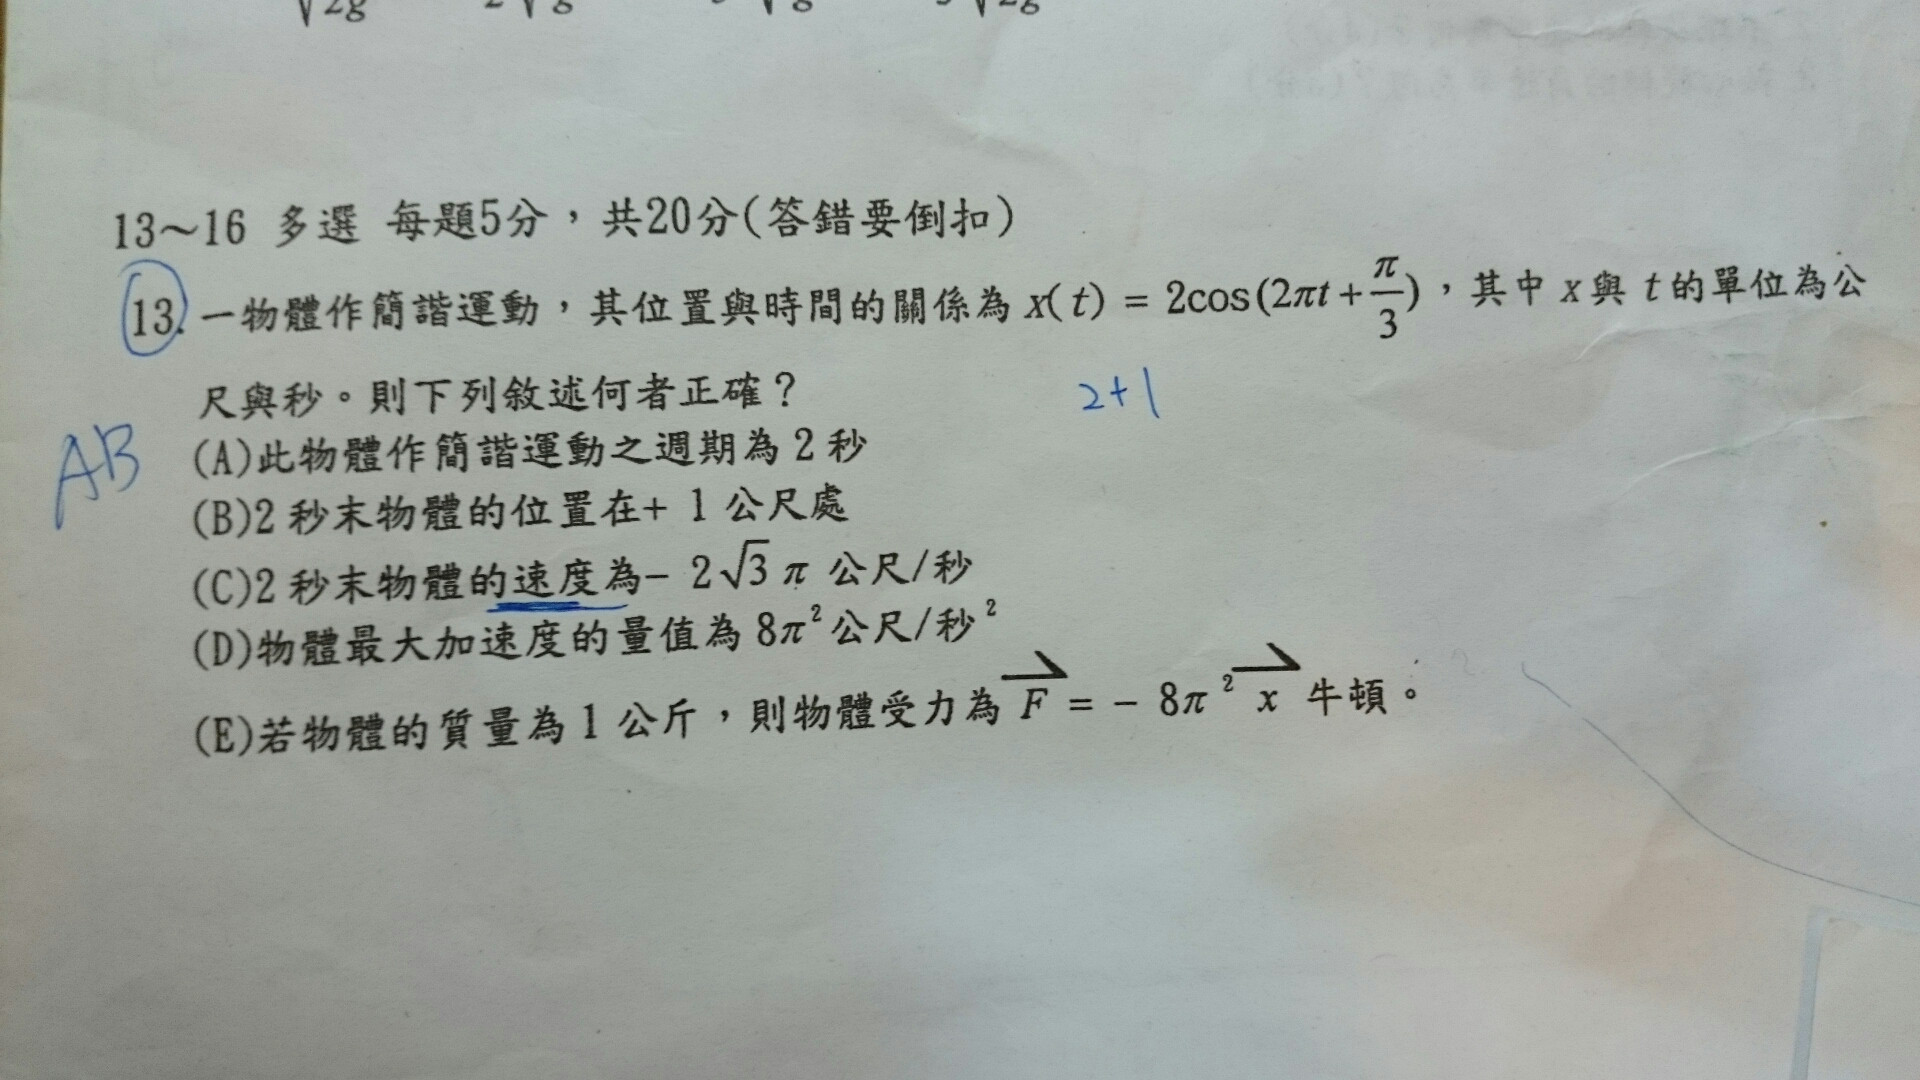 √2g 2√g 3√g 3√2g
13～16 多選 每題5分，共20分(答錯要倒扣)
13. 一物體作簡諧運動，其位置與時間的關係為 x(t) = 2cos(2πt+π/3)，其中 x與 t的單位為公
尺與秒。則下列敘述何者正確？
2+1
AB
(A)此物體作簡諧運動之週期為 2 秒
(B)2 秒末物體的位置在+ 1 公尺處
(C)2 秒末物體的速度為- 2√3 π 公尺/秒
(D)物體最大加速度的量值為 8π²公尺/秒²
(E)若物體的質量為 1 公斤，則物體受力為 F⃗ = - 8π² x⃗ 牛頓。